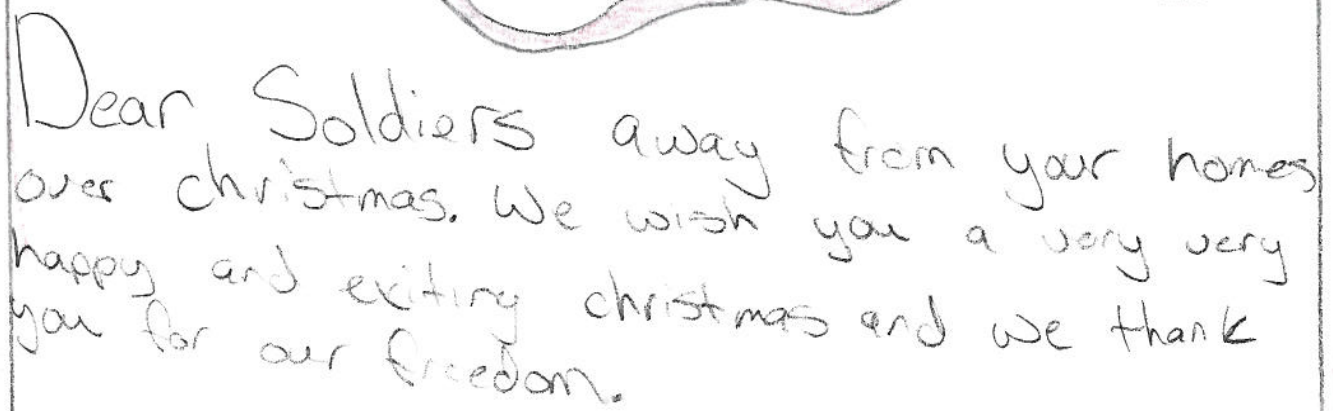 Dear Soldiers away from your homes
over christmas. We wish you a very very
happy and exiting christmas and we thank
you for our freedom.